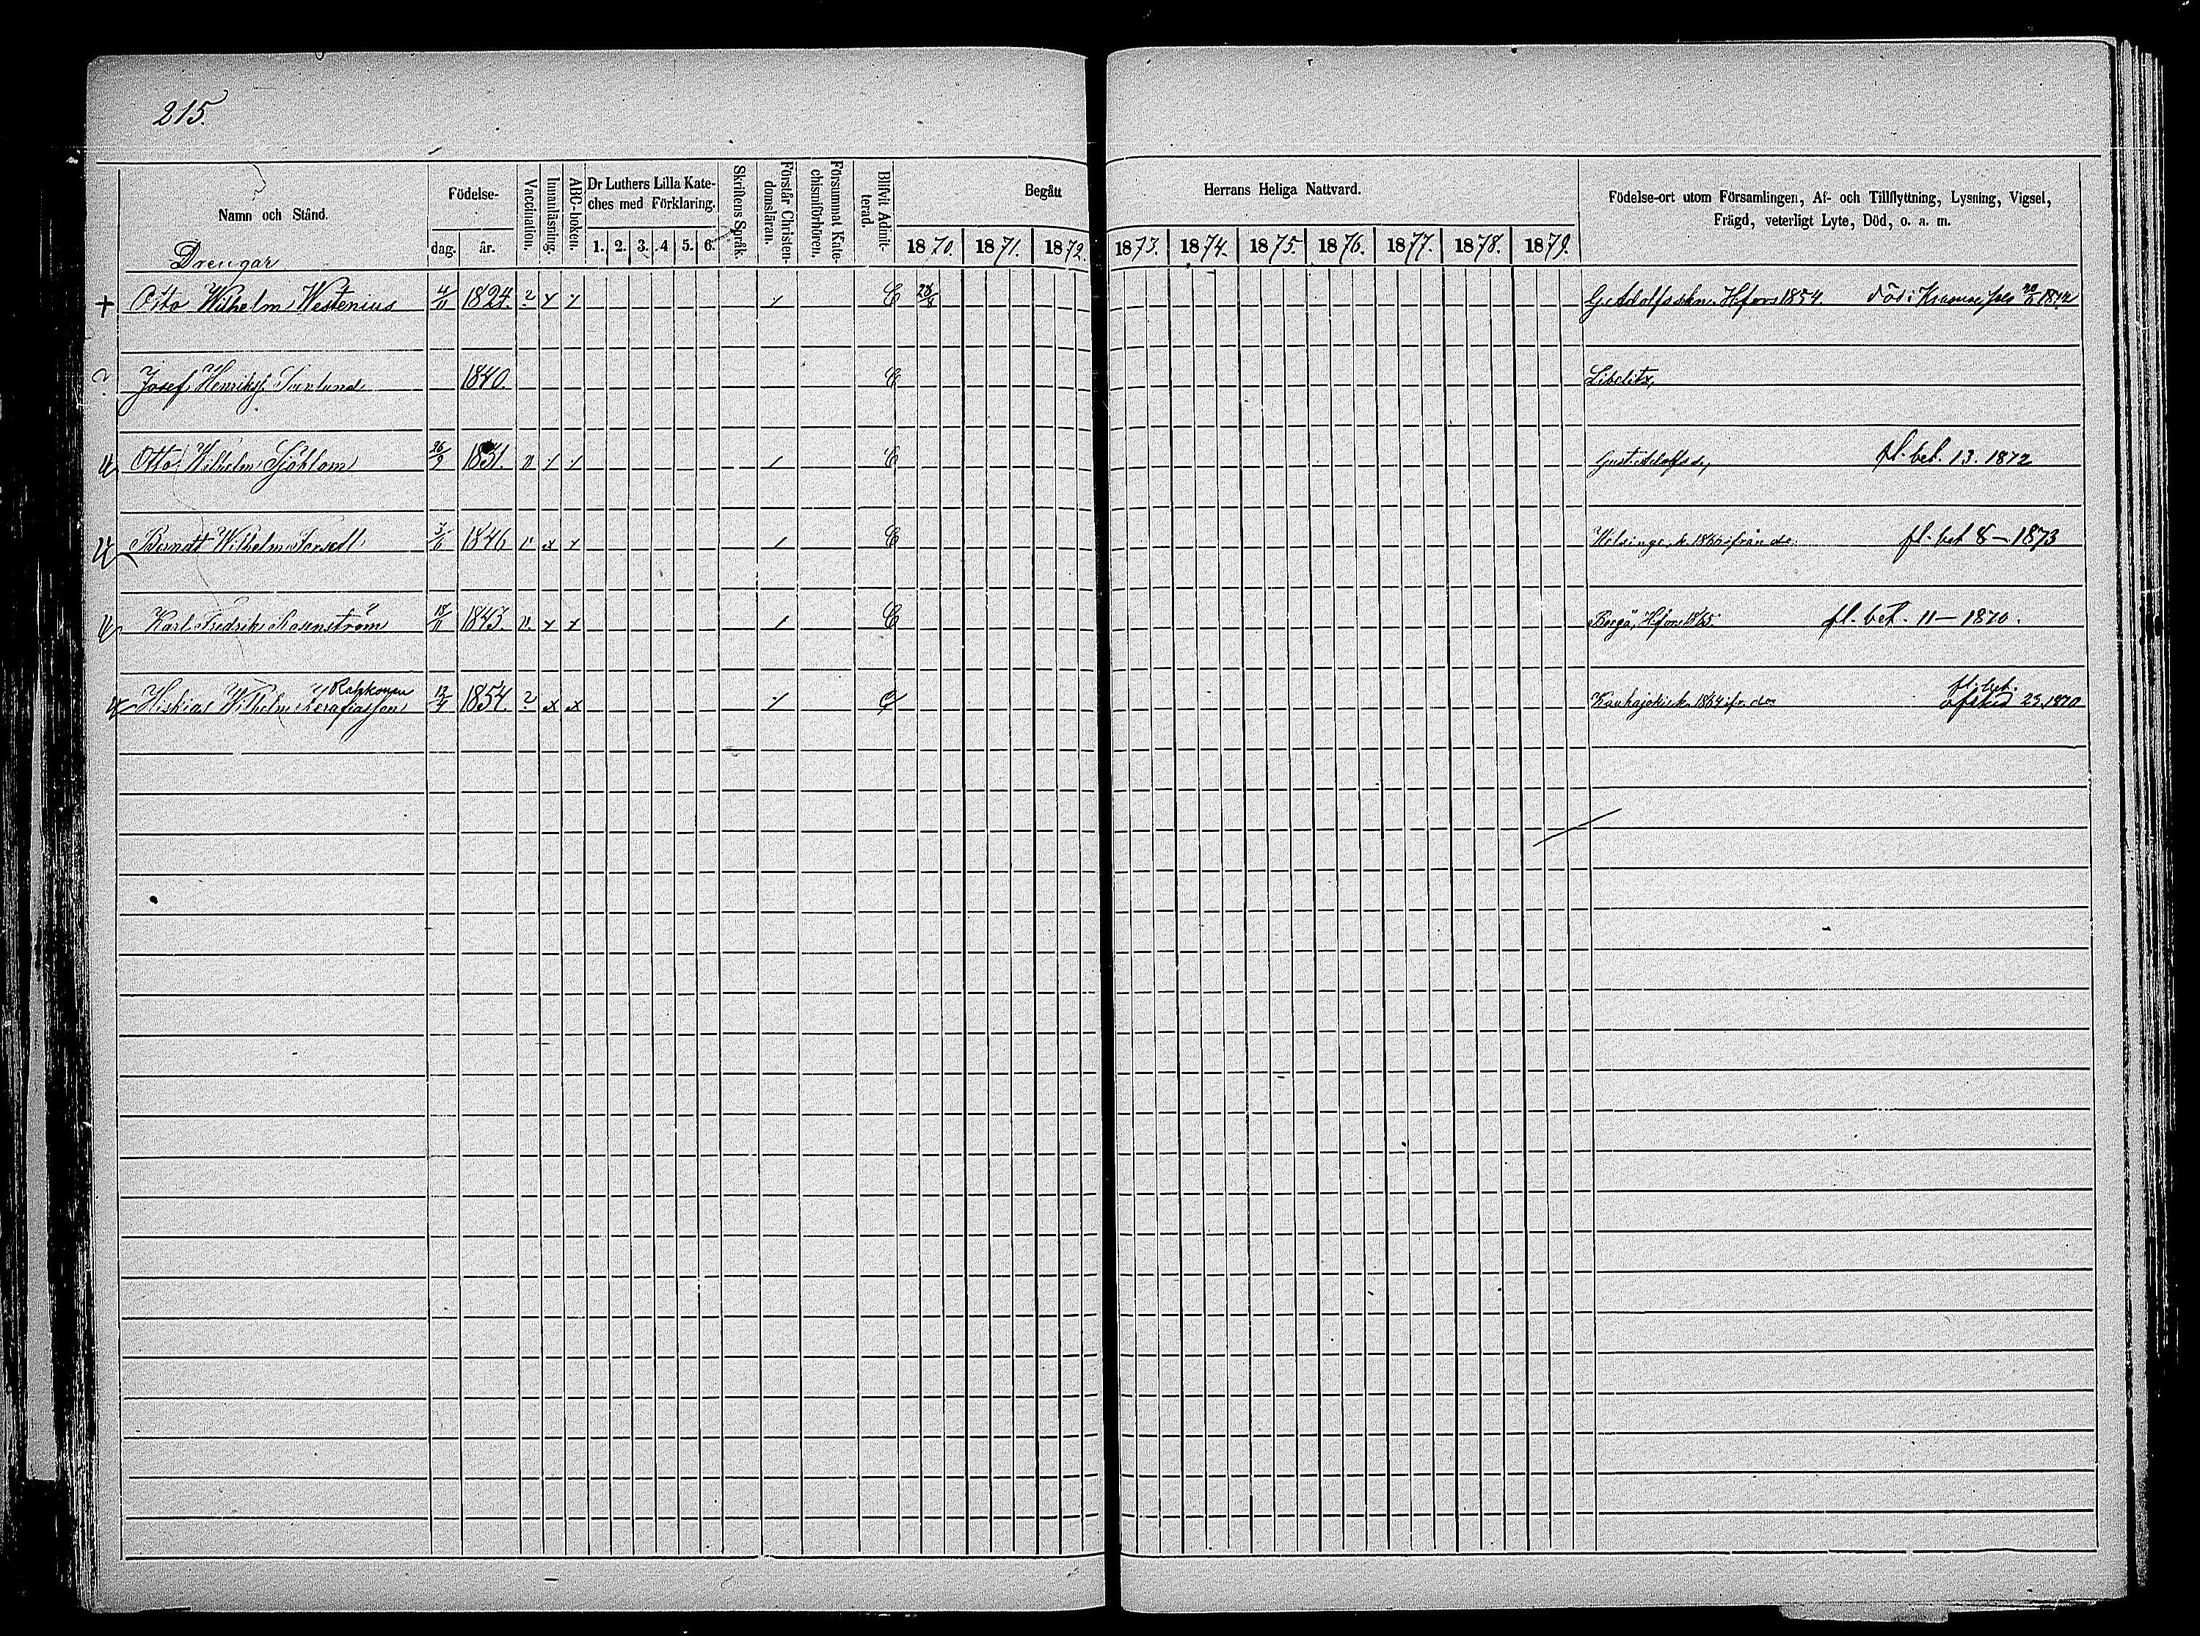 215.
Namn och Stånd.
Födelse-
dag.
år.
Vaccination.
Innanläsning.
ABC-boken.
Dr Luthers Lilla Kate-
ches med Förklaring.
1. 2. 3. 4 5. 6.
Skriftens Språk.
Förstår Christen-
domsläran.
Försummat Kate-
chismiförhören.
Blifvit Admit-
terad.
Begått Herrans Heliga Nattvard.
1870. 1871. 1872. 1873. 1874. 1875. 1876. 1877. 1878. 1879.
Födelse-ort utom Församlingen, Af- och Tillflyttning, Lysning, Vigsel,
Frägd, veterligt Lyte, Död, o. a. m.
Drengar
+ Otto Wilhelm Westenius 4/11 1824. ? x x / C 28/8 G. Adolfs skn. Hfors 1854. död i 1872
? Josef Henriksf. 1840. C Libelitz,
u Otto Wilhelm Sjöblom 26/9 1831. v / / / C Gust. Adolfs d., fl. bet. 13. 1872
u Berndt Wilhelm 1846 v x x / C Helsinge k. från do. fl. bet 8 – 1873
u Karl Fredrik Rosenström 18/11 1843. v. x x / C Borgå, Hfors 1865. fl. bet. 11 – 1870.
Wilhelm 1854. ? x x / Kauhajoki k. 1864 fr. do. fl. bet.
23. 1870